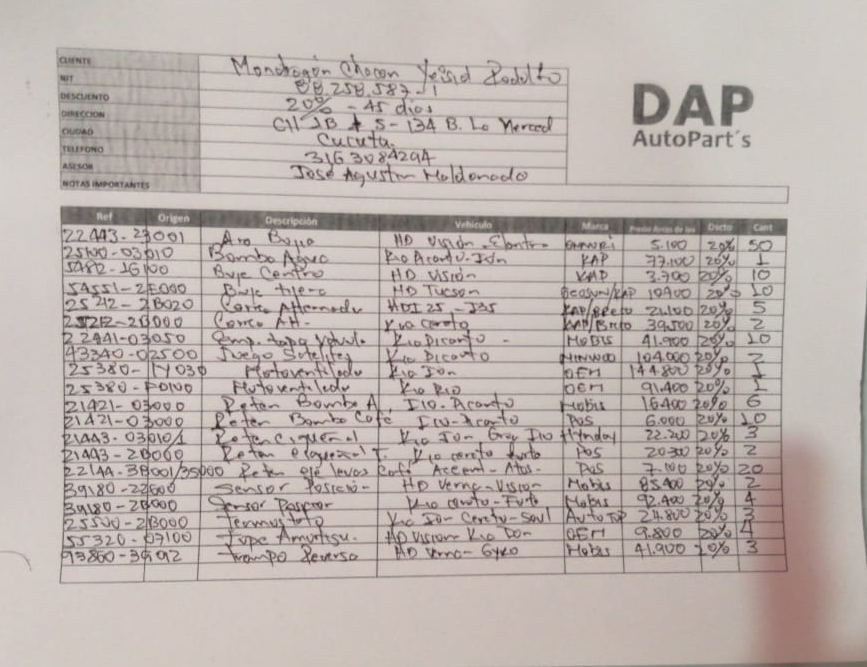 CLIENTE Mondragón Chacon Yeisid Rodolfo
NIT 88.258.587-1
DESCUENTO 20% - 45 dias
DIRECCION Cll 1B # 5-134 B. La Merced
CIUDAD Cucuta.
TELEFONO 3163084294
ASESOR José Agustin Maldonado
NOTAS IMPORTANTES
DAP
AutoPart´s
Ref Origen Descripción Vehiculo Marca Dscto Cant
22443-23001 Aro Bujia HD Visión - Elantra 5.100 20% 50
25100-03010 Bomba Agua Kia Acanto-Ion KAP 77.100 20% 1
Buje Centro HD Visión KAP 3.700 20% 10
54551-2E000 Buje tijera HD Tucson 10.900 20% 10
25212-2B020 Correa Alternador 21.100 20% 5
25212-2B000 Correa Alt. Kia cerato 39.500 20% 2
22441-03050 Emp. tapa Valvula Kia Picanto - Mobis 41.900 20% 10
43340-02500 Juego Satelites Kia Picanto 104.000 20% 2
25380-1Y030 Motoventilador Kia Ion OEM 144.800 20% 1
Motoventilador Kia Rio OEM 91.400 20% 1
21421-03000 Reten Bomba A. I10-Acanto Mobis 16.400 20% 6
21421-03000 Reten Bomba Café I10-Acanto Pos 6.000 20% 10
21443-03010/1 Reten Cigueñal Kia Ion Gray I10 Hynday 22.200 20% 3
21443-2B060 Reten cigueñal T. Kia cerato Pos 20.300 20% 2
22144-3B001/35000 Reten eje levas Café Accent-Atos- Pos 7.100 20% 20
39180-22600 Sensor Posición HD Verna-Vision Mobis 85.400 20% 2
39180-2B000 Sensor Posicion Kia cerato-Forte Mobis 92.400 20% 4
25500-2B000 Termostato Kia Ion-Cerato-Soul Auto TOP 24.800 20% 3
55320-07100 Tope Amortigu. HD Vision Kia Ion OEM 9.800 20% 4
Trompo Reversa HD Verna-Gyro Mobis 41.900 20% 3